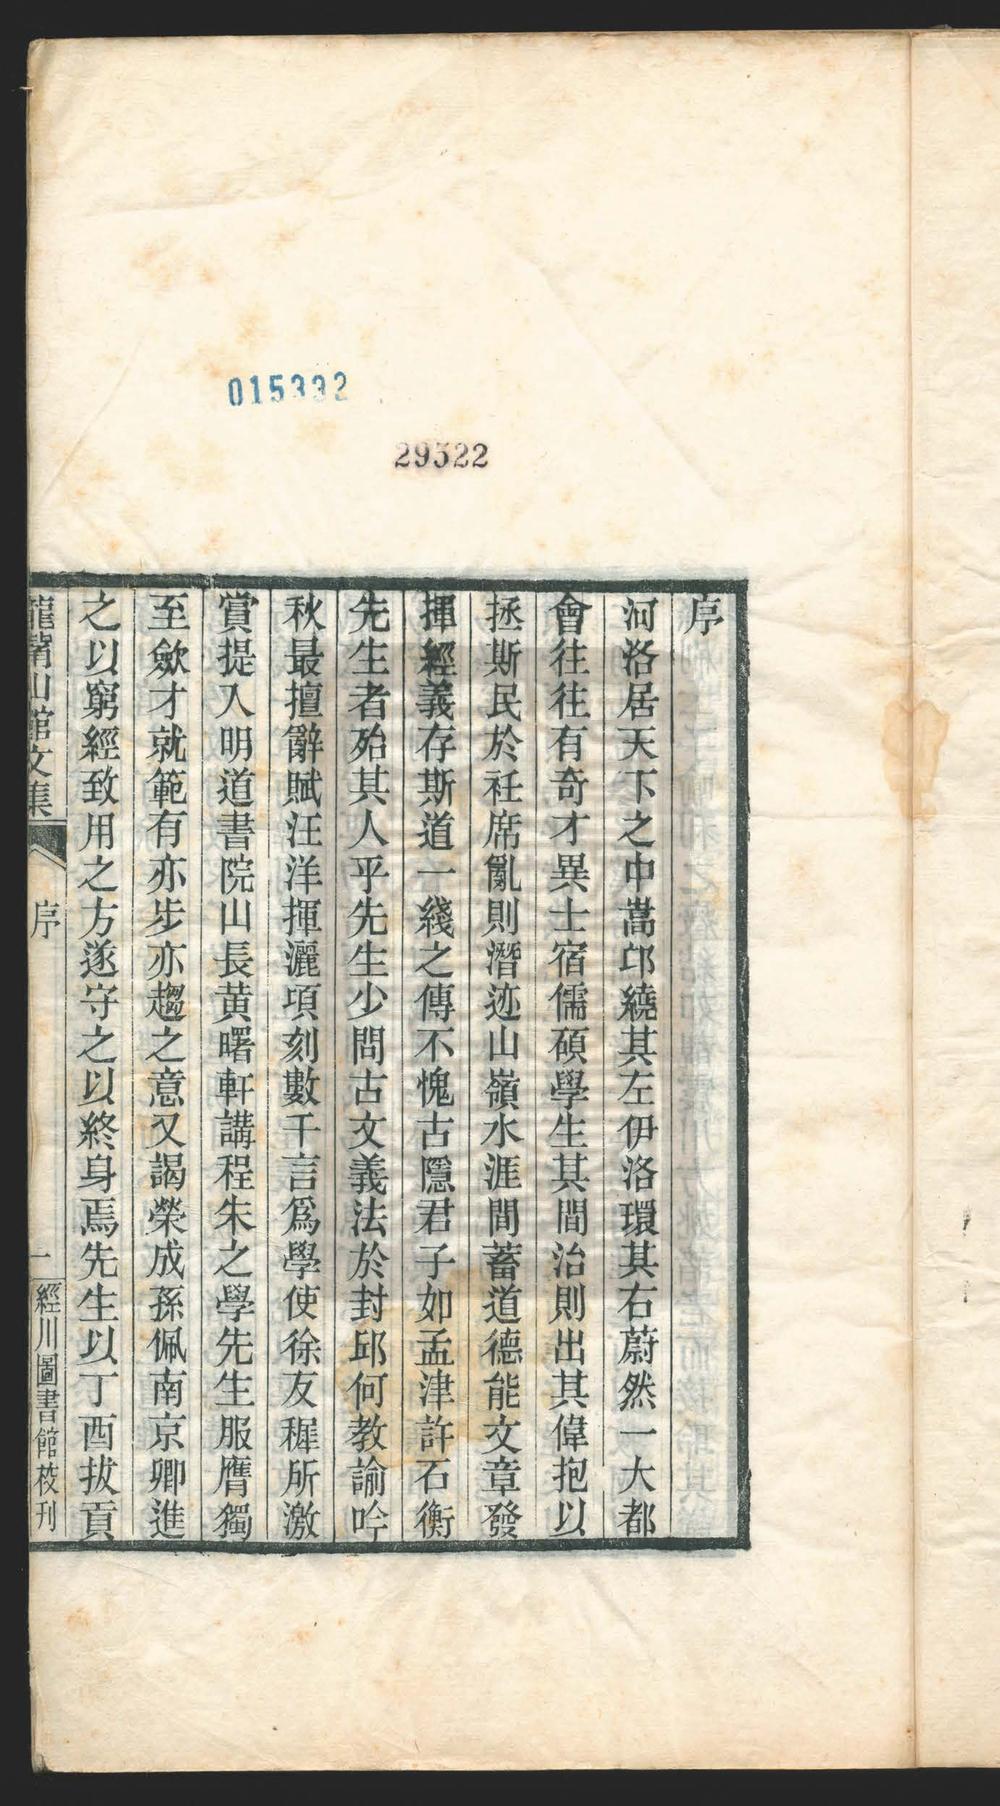 015332
29322
序
河洛居天下之中嵩邙繞其左伊洛環其右蔚然一大都
會往往有奇才異士宿儒碩學生其間治則出其偉抱以
拯斯民於衽席亂則潛迹山嶺水涯間蓄道德能文章發
揮經義存斯道一綫之傳不愧古隱君子如孟津許石衡
先生者殆其人乎先生少問古文義法於封邱何教諭吟
秋最擅辭賦汪洋揮灑項刻數千言爲學使徐友穉所激
賞提入明道書院山長黃曙軒講程朱之學先生服膺獨
至歛才就範有亦步亦趨之意又謁榮成孫佩南京卿進
之以窮經致用之方遂守之以終身焉先生以丁酉拔貢
龍嘴山館文集
序
一
經川圖書館校刊